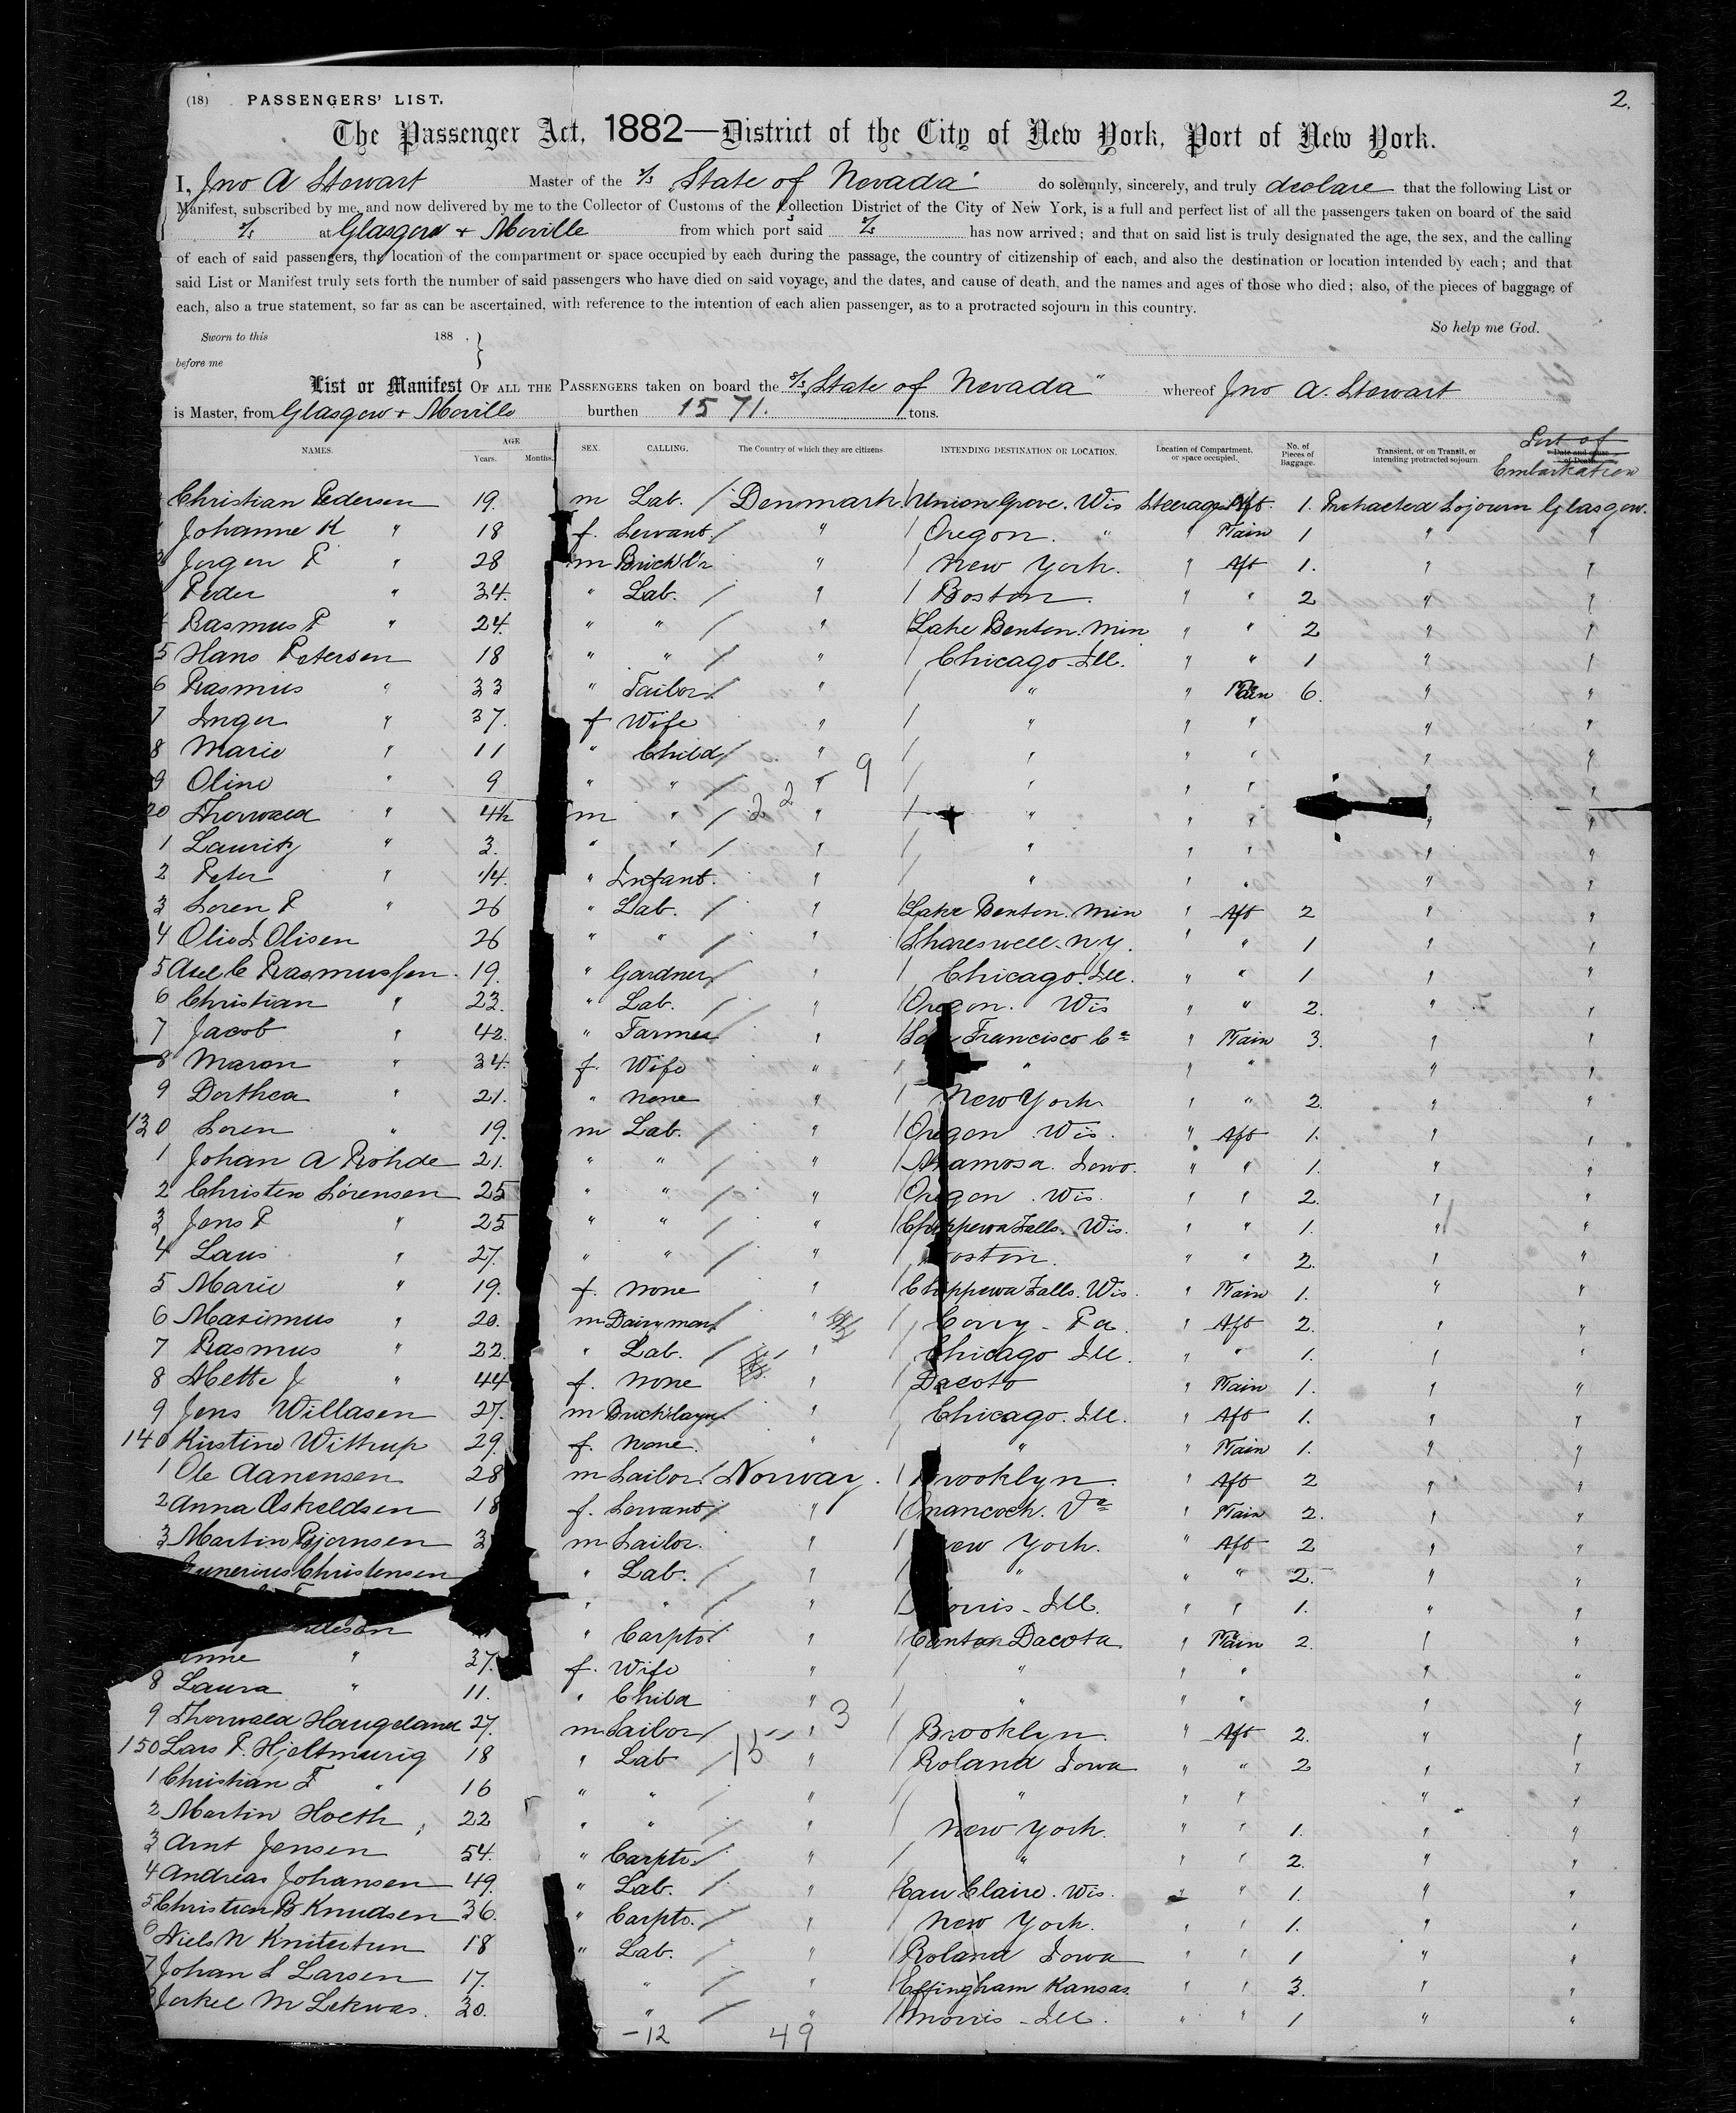 (18) PASSENGERS' LIST. 2.
The Passenger Act, 1882—District of the City of New York, Port of New York.
I, Jno A Stewart Master of the s/s "State of Nevada" do solemnly, sincerely, and truly declare that the following List or
Manifest, subscribed by me, and now delivered by me to the Collector of Customs of the Collection District of the City of New York, is a full and perfect list of all the passengers taken on board of the said
s/s at Glasgow + Moville from which port said s/s has now arrived; and that on said list is truly designated the age, the sex, and the calling
of each of said passengers, the location of the compartment or space occupied by each during the passage, the country of citizenship of each, and also the destination or location intended by each; and that
said List or Manifest truly sets forth the number of said passengers who have died on said voyage, and the dates, and cause of death, and the names and ages of those who died; also, of the pieces of baggage of
each, also a true statement, so far as can be ascertained, with reference to the intention of each alien passenger, as to a protracted sojourn in this country.
So help me God.
Sworn to this 188 .
before me
List or Manifest OF ALL THE PASSENGERS taken on board the s/s "State of Nevada" whereof Jno A. Stewart
is Master, from Glasgow + Moville burthen 1571. tons.
NAMES. AGE Years. Months. SEX. CALLING. The Country of which they are citizens. INTENDING DESTINATION OR LOCATION. Location of Compartment, or space occupied. No. of Pieces of Baggage. Transient, or on Transit, or intending protracted sojourn. Date and cause of Death. Port of Embarkation
Christian Pedersen 19. m Lab. / Denmark / Union Grove. Wis Steerage Aft. 1. Protracted Sojourn Glasgow.
Johanne K " 18 f. Servant. / " / Oregon. " " Main 1 " "
Jorgen P " 28 m Brick'l'r " / New York. " Aft 1. " "
Peder " 34. " Lab. / " / Boston. " " 2 " "
Rasmus P " 24. " " / " / Lake Benton. Min " " 2 " "
5 Hans Petersen 18 " " / " / Chicago. Ill. " " 1 " "
6 Rasmus " 33 " Tailor / " / " " Main 6. " "
7 Inger " 37. f Wife " / " " " " "
8 Marie " 11 " Child / " / " " " " "
9 Oline " 9 " " / " 9 / " " " " "
20 Thorwald " 4½ m " / 22 " / " " " " "
1 Lauritz " 3. " " / " / " " " " "
2 Peter " 1/4. " Infant. " / " " " " "
3 Soren P " 26 " Lab. / " / Lake Benton. Min " Aft 2 " "
4 Olisen 26 " " / " / N.Y. " " 1 " "
5 Axel C Rasmussen. 19. " Gardner / " / Chicago. Ill. " " 1 " "
6 Christian " 23. " Lab. / " / Oregon. Wis " " 2. " "
7 Jacob " 42. " Farmer " / San Francisco Ca " Main 3. " "
8 Maron " 34. f. Wife " / " " " " "
9 Dorthea " 21. " None " / New York " " 2. " "
130 Soren " 19. m Lab. / " / Oregon. Wis. " Aft 1. " "
1 Johan A Rohde 21. " " / " / Anamosa. Iowa. " " 1. " "
2 Christen Sorensen 25 " " / " / Oregon. Wis. " " 2. " "
3 Jens P " 25 " " / " / Chippewa Falls. Wis. " " 1. " "
4 Laus " 27. " " / " / Boston. " " 2. " "
5 Marie " 19. f. None " / Chippewa Falls. Wis. " Main 1. " "
6 Maximus " 20. m Dairyman / " / Corry - Pa. " Aft 2. " "
7 Rasmus " 22. " Lab. / " / Chicago Ill. " " 1. " "
8 Mette J " 44 f. None " / Dacota " Main 1. " "
9 Jens Willasen 27. m Bricklayr. " / Chicago. Ill. " Aft 1. " "
140 Kirstine Wittrup 29. f. None. " / " " Main 1. " "
1 Ole Aanensen 28 m Sailor / Norway. / Brooklyn " Aft 2 " "
2 Anna Oskeldsen 18 f. Servant / " / Onancock. Va " Main 2. " "
3 Martin Bjornsen 3 m Sailor. " / New York. " Aft 2 " "
Christensen " Lab. / " / " " " 2. " "
" " / " / Morris - Ill. " " 1. " "
" Carptr / " / Canton Dacota " Main 2. " "
" 37. f. Wife " / " " " " "
8 Laura " 11. " Child " / " " " " "
9 Thorwald Haugeland 27. m Sailor / " 3 / Brooklyn. " Aft 2. " "
150 Lars P. 18 " Lab / 15 " / Roland Iowa " " 2 " "
1 Christian T " 16 " " / " / " " " " "
2 Martin Hoeth 22 " " / " / New York. " " 1. " "
3 Arnt Jensen 54. " Carptr / " / " " " 2. " "
4 Andreas Johansen 49. " Lab. / " / Eau Claire. Wis. " " 1. " "
5 Christian B Knudsen 36. " Carptr. / " / New York. " " 1. " "
6 Niels N 18 " Lab. / " / Roland Iowa " " 1 " "
7 Johan S Larsen 17. " / " / Effingham Kansas. " " 3. " "
M Lekwas. 30. " / " / Morris - Ill. " " 1 " "
-12 49